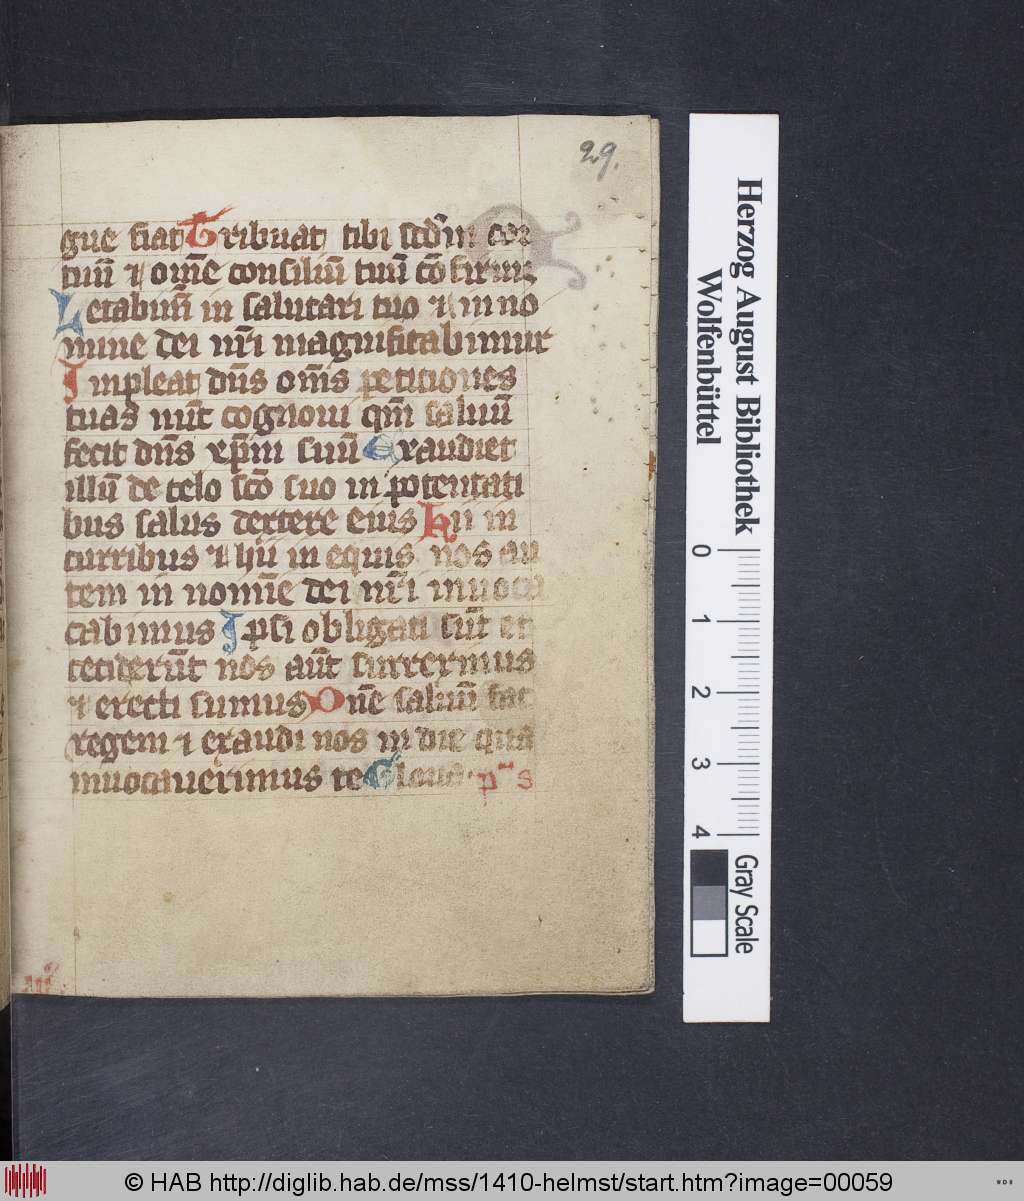 29.
gue fiat Tribuat tibi scdm cor
tuū ⁊ om̄e consiliū tuū cōfirmet
Letabim̄ in salutari tuo ⁊ in no
mine dei nr̄i magnificabimur
Impleat dn̄s om̄s petitiones
tuas nūc cognoui qm̄ saluū
fecit dn̄s xp̄m suū Exaudiet
illū de celo scō suo in potentati
bus salus dextere eius Hii in
curribus ⁊ hii in equis nos au
tem in nomīe dei nr̄i inuoca
cabimus Ipsi obligati sūt et
ceciderūt nos aūt surreximus
⁊ erecti sumus Dn̄e saluū fac
regem ⁊ exaudi nos in die qua
inuocauerimus te Gloria p̄s
Herzog August Bibliothek
Wolfenbüttel
0 1 2 3 4
Gray Scale
© HAB http://diglib.hab.de/mss/1410-helmst/start.htm?image=00059